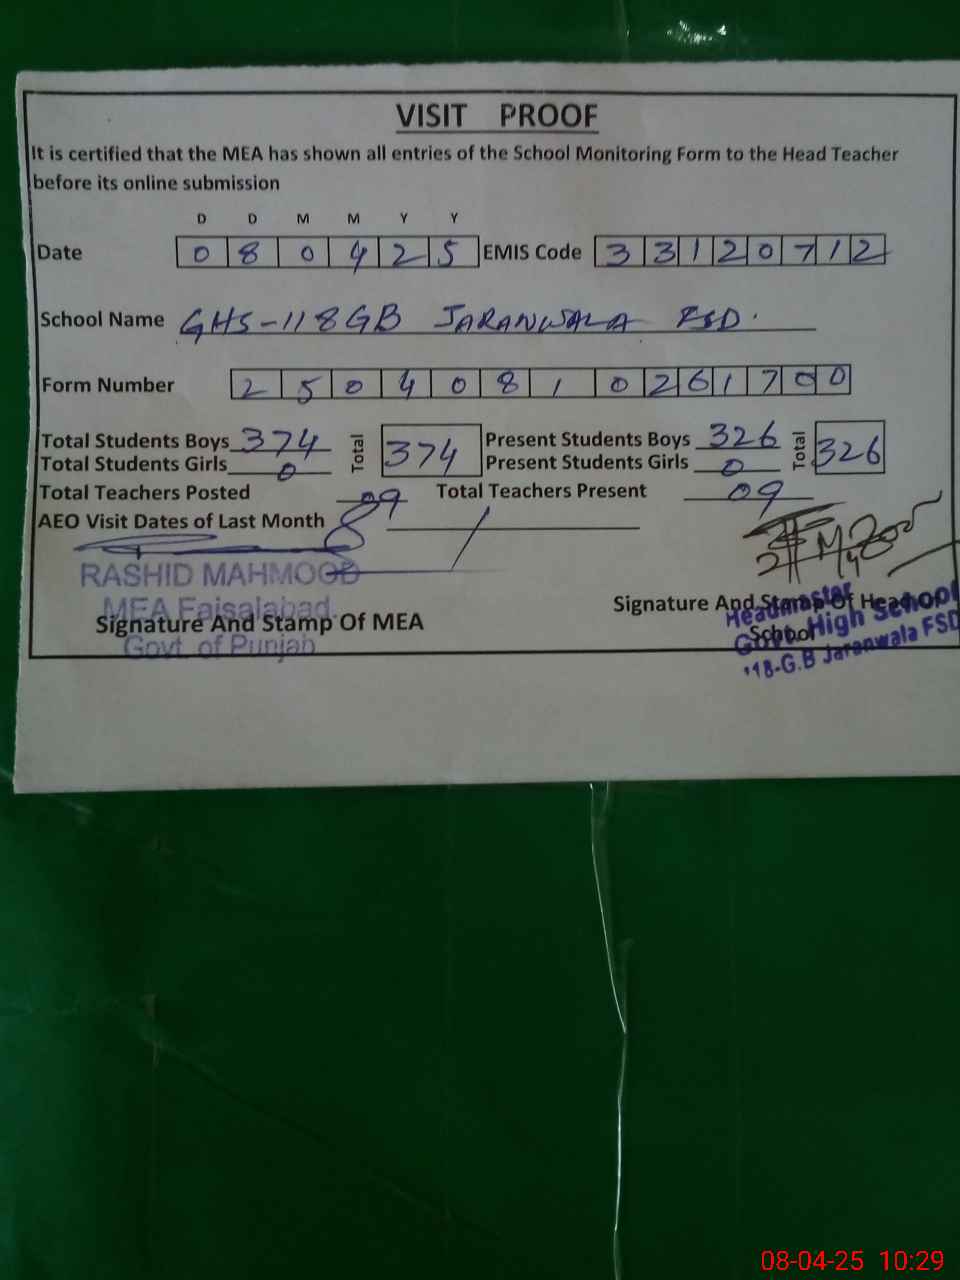 VISIT PROOF
It is certified that the MEA has shown all entries of the School Monitoring Form to the Head Teacher
before its online submission
D D M M Y Y
Date 0 8 0 4 2 5 EMIS Code 3 3 1 2 0 7 1 2
School Name GHS-118GB JARANWALA FSD.
Form Number 2 5 0 4 0 8 1 0 2 6 1 7 0 0
Total Students Boys 374 Total 374 Present Students Boys 326 Total 326
Total Students Girls 0 Present Students Girls 0
Total Teachers Posted 09 Total Teachers Present 09
AEO Visit Dates of Last Month
RASHID MAHMOOD
MEA Faisalabad.
Signature And Stamp Of MEA
Govt. of Punjab
Signature And Stamp Of Head of
School
Headmaster
Govt. High School
118-G.B Jaranwala FSD
08-04-25 10:29